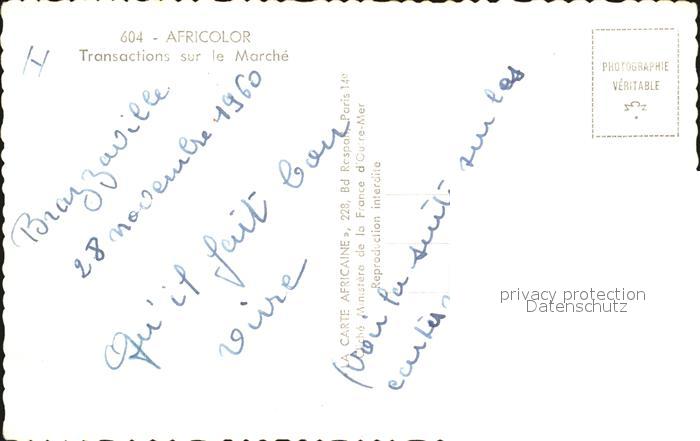 604 - AFRICOLOR
Transactions sur le Marché
I
PHOTOGRAPHIE
VÉRITABLE
Brazzaville
28 novembre 1960
Qu'il fait bon
vivre
LA CARTE AFRICAINE », 228, Bd Raspail, Paris 14e
Cliché Ministère de la France d'Outre-Mer
Reproduction interdite
(Voir la suite sur les
cartes
privacy protection
Datenschutz